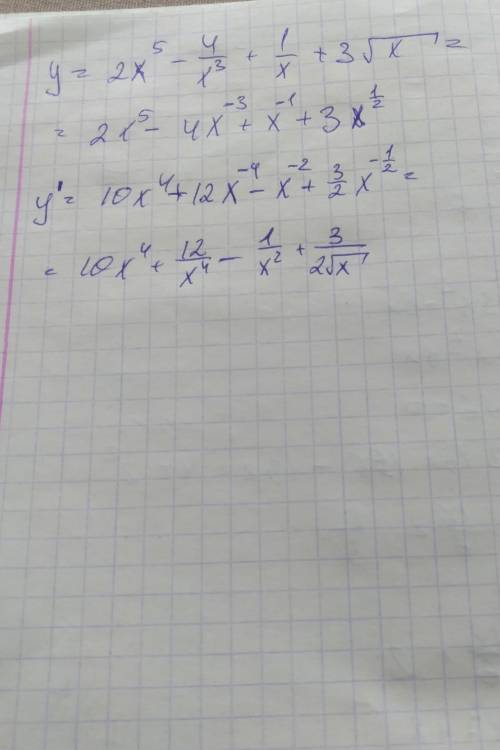 y = 2x⁵ - 4/x³ + 1/x + 3√x =
= 2x⁵ - 4x⁻³ + x⁻¹ + 3x^(1/2)
y' = 10x⁴ + 12x⁻⁴ - x⁻² + 3/2 x^(-1/2) =
= 10x⁴ + 12/x⁴ - 1/x² + 3/(2√x)